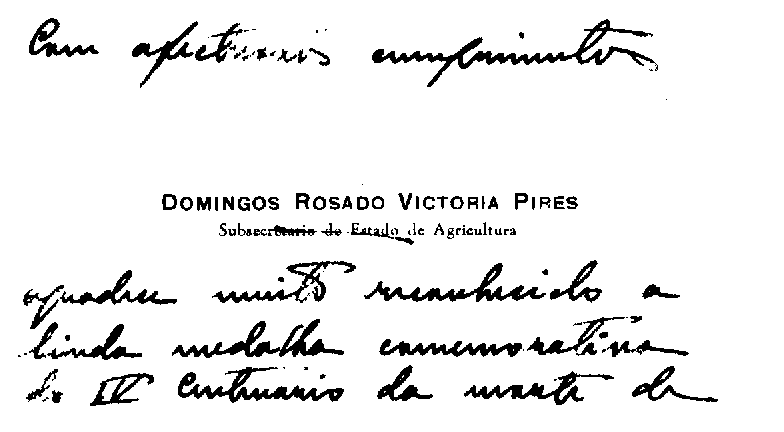 Com afectuosos cumprimentos
DOMINGOS ROSADO VICTORIA PIRES
Subsecretario de Estado de Agricultura
agradece muito reconhecido a
linda medalha comemorativa
do IV Centenário da morte de